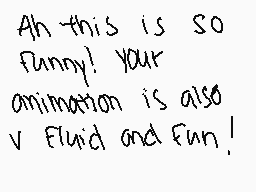 Ah this is so
funny! your
animation is also
v fluid and fun!